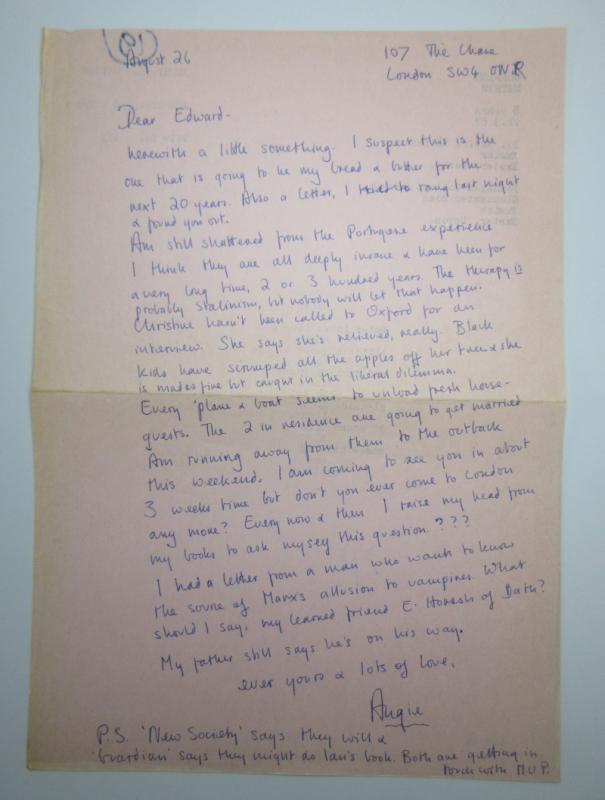 August 26
107 The Chase
London SW4 0NR
Dear Edward -
herewith a little something. I suspect this is the
one that is going to be my bread & butter for the
next 20 years. Also a letter, I tried to rang last night
& found you out.
Am still shattered from the Portuguese experience
I think they are all deeply insane & have been for
a very long time, 2 or 3 hundred years. The therapy is
probably Stalinism, but nobody will let that happen.
Christine hasn't been called to Oxford for an
interview. She says she's relieved, really. Black
kids have scrumped all the apples off her tree & she
is mad as fire but caught in the liberal dilemma.
Every 'plane & boat seems to unload fresh house-
guests. The 2 in residence are going to get married
Am running away from them to the outback
this weekend. I am coming to see you in about
3 weeks time but don't you ever come to London
any more? Every now & then I raise my head from
my books to ask myself this question. ???
I had a letter from a man who wants to know
the source of Marx's allusion to vampires. What
should I say, my learned friend E. Horesh of Bath?
My father still says he's on his way.
ever yours & lots of love,
Angie
P.S. 'New Society' says they will &
'Guardian' says they might do Ian's book. Both are getting in
touch with M.U.P.